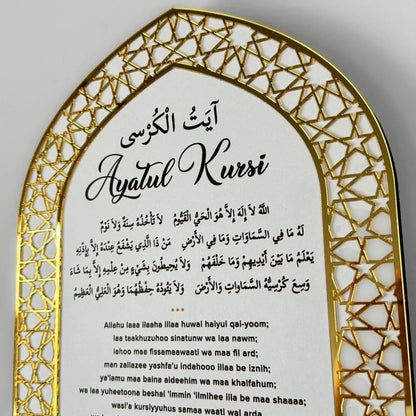 آيَتُ الْكُرْسِى
Ayatul Kursi
اَللَّهُ لاَ إِلَهَ إِلاَّ هُوَ الْحَيُّ الْقَيُّومُ لاَ تَأْخُذُهُ سِنَةٌ وَلاَ نَوْمٌ
لَهُ مَا فِي السَّمَاوَاتِ وَمَا فِي الأَرْضِ مَنْ ذَا الَّذِي يَشْفَعُ عِنْدَهُ إِلاَّ بِإِذْنِهِ
يَعْلَمُ مَا بَيْنَ أَيْدِيهِمْ وَمَا خَلْفَهُمْ وَلاَ يُحِيطُونَ بِشَيْءٍ مِنْ عِلْمِهِ إِلاَّ بِمَا شَاءَ
وَسِعَ كُرْسِيُّهُ السَّمَاوَاتِ وَالأَرْضَ وَلاَ يَئُودُهُ حِفْظُهُمَا وَهُوَ الْعَلِيُّ الْعَظِيمُ
Allahu laaa ilaaha illaa huwal haiyul qai-yoom;
laa taakhuzuhoo sinatunw wa laa nawm;
lahoo maa fissamaawaati wa maa fil ard;
man zallazee yashfa'u indahooo illaa be iznih;
ya'lamu maa baina aideehim wa maa khalfahum;
wa laa yuheetoona beshai 'immin 'ilmihee illa be maa shaaaa;
wasi'a kursiyyuhus samaa waati wal arda